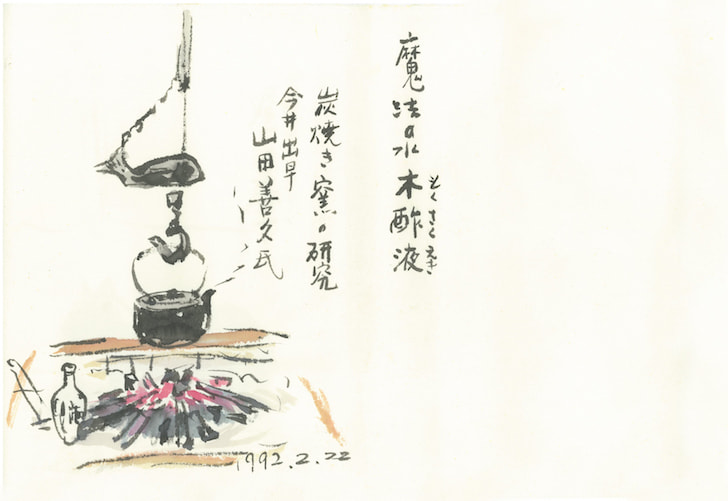 魔法の水木酢液
もくさくえき
炭焼き窯の研究
今井出早
山田善久氏
酒
1992.2.22